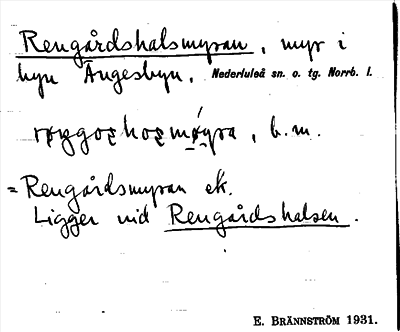 Rengårdshalsmyran, myr i
byn Ängesbyn, Nederluleå sn. o. tg. Norrb. l.
b. m.
= Rengårdsmyran ek.
Ligger vid Rengårdshalsen.
E. BRÄNNSTRÖM 1931.